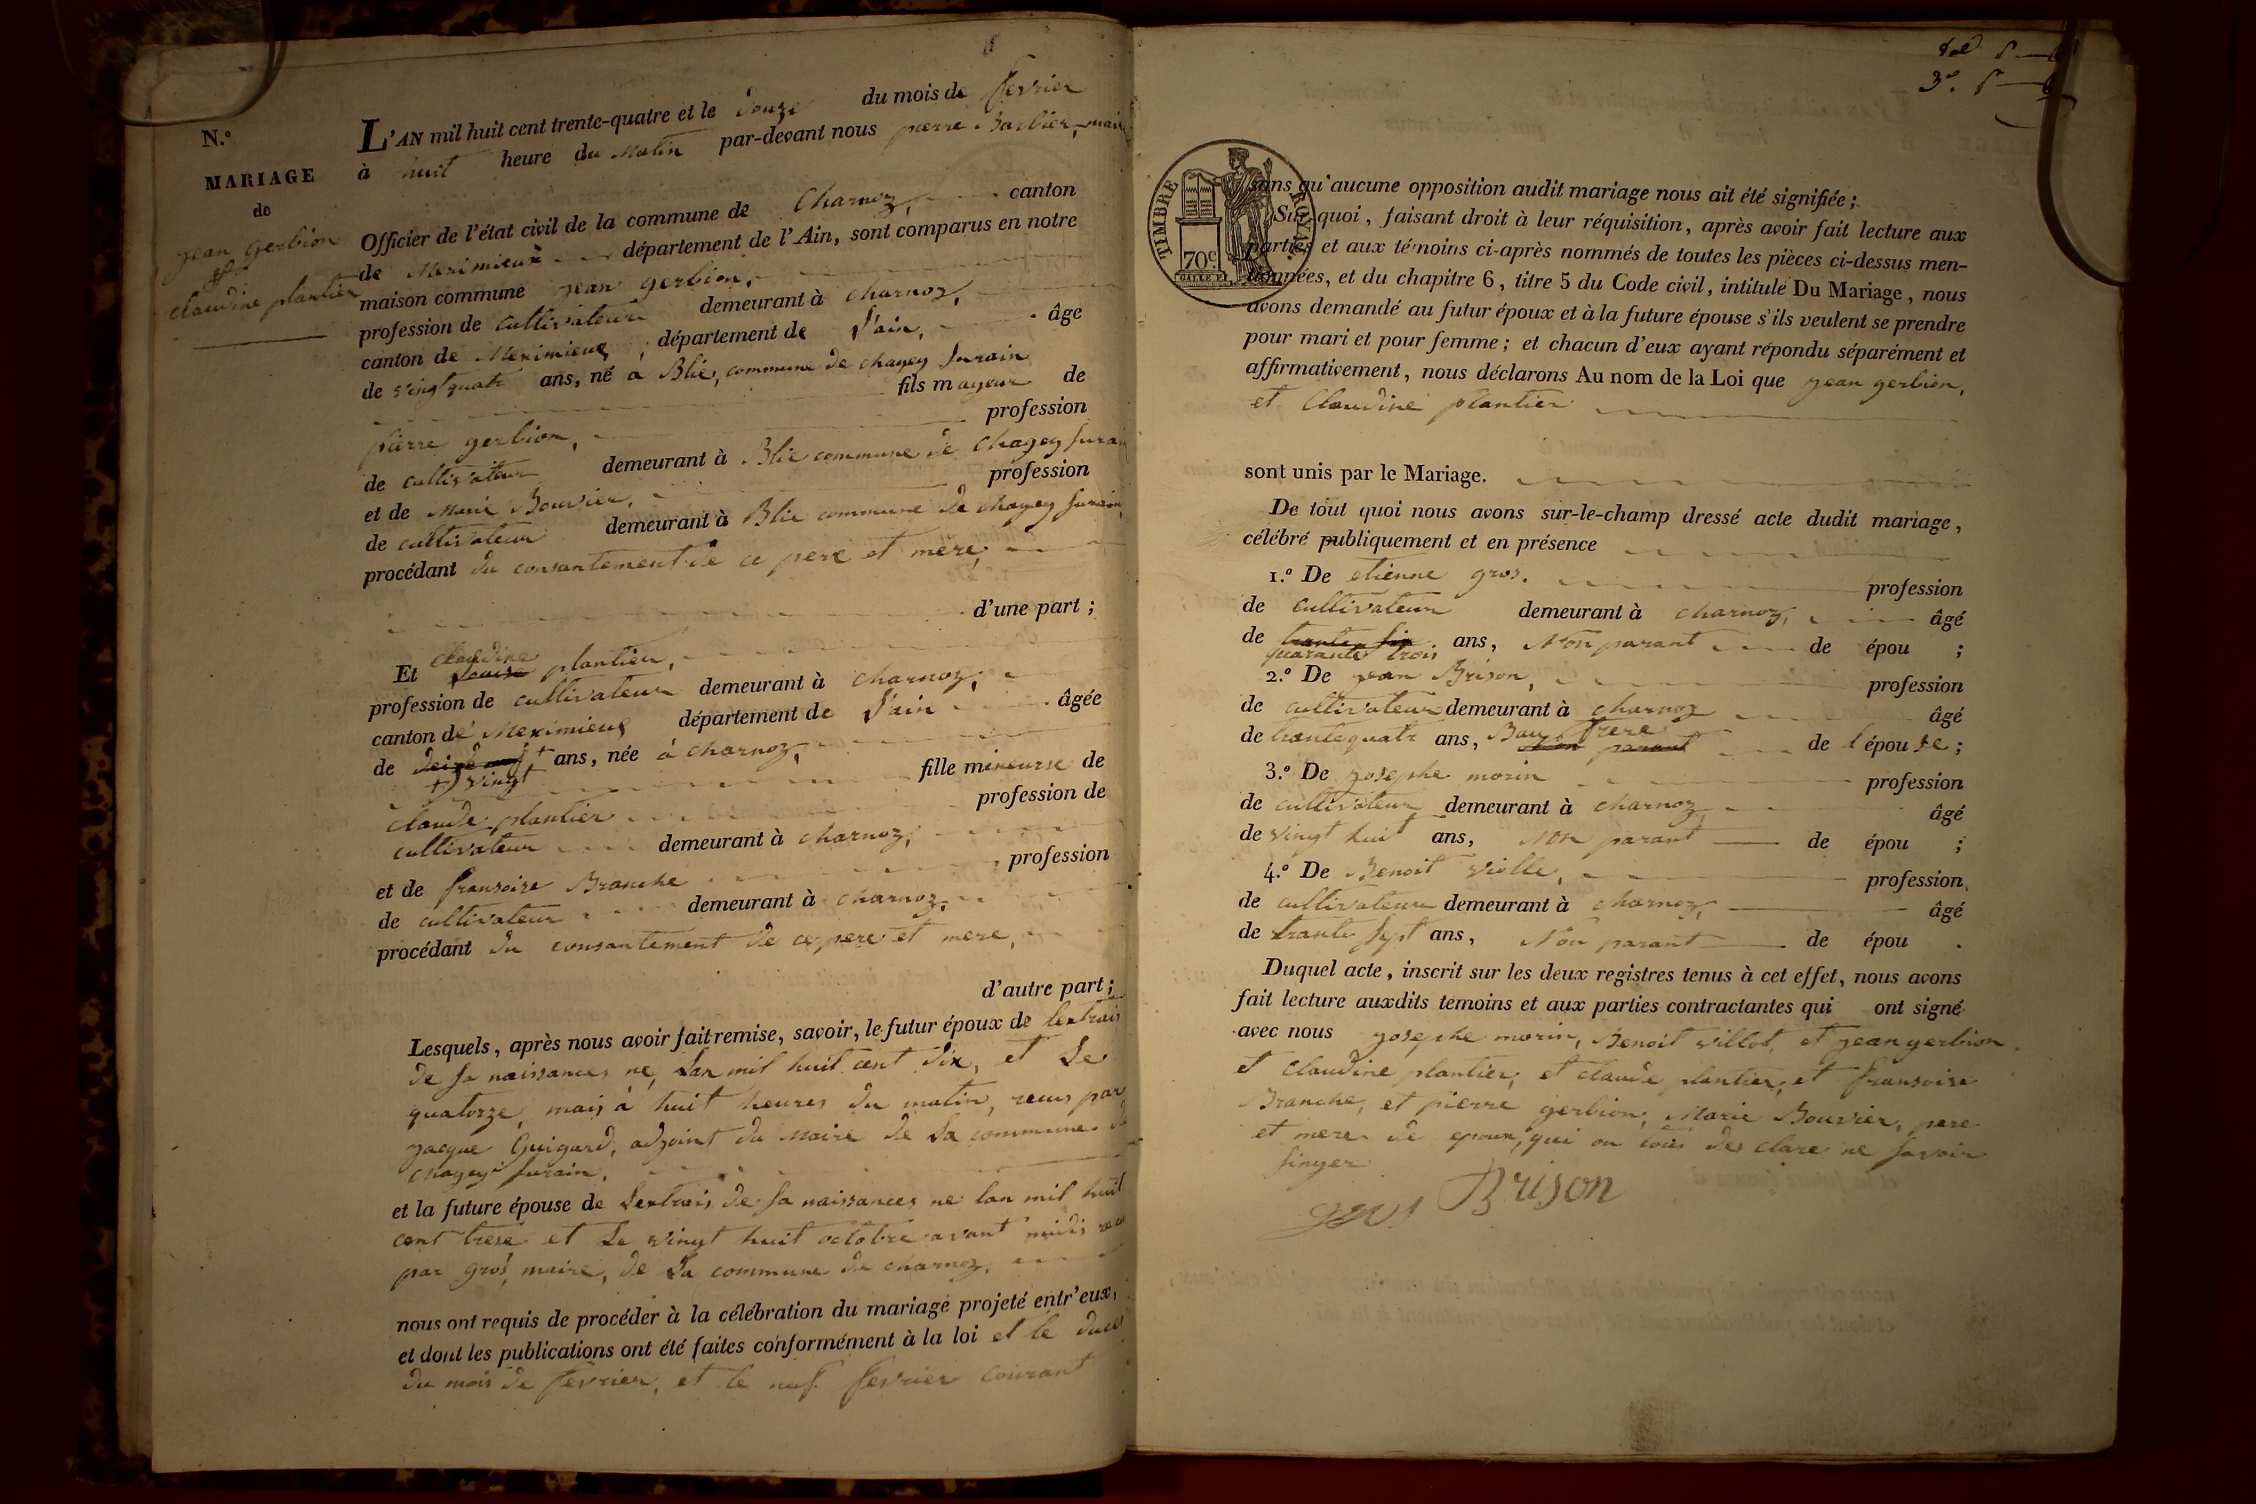 N.°
MARIAGE
de
jean gerbion
et
claudine plantier
L'AN mil huit cent trente-quatre et le douze du mois de fevrier
à huit heure du matin par-devant nous pierre Barbier, mair
Officier de l'état civil de la commune de Charnoz, canton
de Meximieux département de l'Ain, sont comparus en notre
maison commune jean gerbion,
profession de cultivateur demeurant à charnoz,
canton de Meximieux, département de l'ain, âgé
de vingt quatr ans, né a Blie, commune de chazey surain
fils mageur de
pierre gerbion, profession
de cultivateur demeurant à Blie commune de Chazey surain
et de Marie Bouvier, profession
de cultivateur demeurant à Blie commune de chazey surain,
procédant du consantement de ce pere et mere,
d'une part;
Et claudine louise plantier,
profession de cultivateur demeurant à charnoz,
canton de Meximieux département de l'ain âgée
de ans, née à charnoz,
+) vingt fille mineurse de
claude plantier profession de
cultivateur demeurant à charnoz,
et de fransoise Branche profession
de cultivateur demeurant à charnoz,
procédant du consantement de ce pere et mere,
d'autre part;
Lesquels, après nous avoir fait remise, savoir, le futur époux de lextrais
de sa naissances ne, Lan mil huit cent dix, et Le
quatorze mais à huit heures du matin, recus par
jacque Guigard, adjoint du Maire de La commune de
chazey surain.
et la future épouse de Lextrais de sa naissances ne lan mil huit
cent trese et Le vingt huit octobre avant midis recu
par gros, maire, de La commune de charnoz,
nous ont requis de procéder à la célébration du mariage projeté entr'eux,
et dont les publications ont été faites conformément à la loi et le deux
du mois de fevrier, et le neuf fevrier courant
3.°
TIMBRE ROYAL
70c.
sans qu'aucune opposition audit mariage nous ait été signifiée;
Sur quoi, faisant droit à leur réquisition, après avoir fait lecture aux
parties et aux témoins ci-après nommés de toutes les pièces ci-dessus men-
tionnées, et du chapitre 6, titre 5 du Code civil, intitulé Du Mariage, nous
avons demandé au futur époux et à la future épouse s'ils veulent se prendre
pour mari et pour femme; et chacun d'eux ayant répondu séparément et
affirmativement, nous déclarons Au nom de la Loi que jean gerbion,
et Claudine plantier
sont unis par le Mariage.
De tout quoi nous avons sur-le-champ dressé acte dudit mariage,
célébré publiquement et en présence
1.° De etienne gros. profession
de cultivateur demeurant à charnoz, âgé
de trante six ans, Non parant de épou ;
quarante trois
2.° De jean Brison, profession
de cultivateur demeurant à charnoz âgé
de trante quatr ans, Baux frere non parant de l'épou se;
3.° De josephe morin profession
de cultivateur demeurant à charnoz âgé
de vingt huit ans, Non parant de épou ;
4.° De Benoit violle, profession
de cultivateur demeurant à charnoz, âgé
de trante sept ans, Non parant de épou .
Duquel acte, inscrit sur les deux registres tenus à cet effet, nous avons
fait lecture auxdits temoins et aux parties contractantes qui ont signé
avec nous josephe morin, Benoit villot, et jean gerbion
et claudine plantier, et claude plantier, et fransoise
Branche, et pierre gerbion, Marie Bouvier, pere
et mere de epoux, qui on tous de clare ne savoir
singer
gros Brison